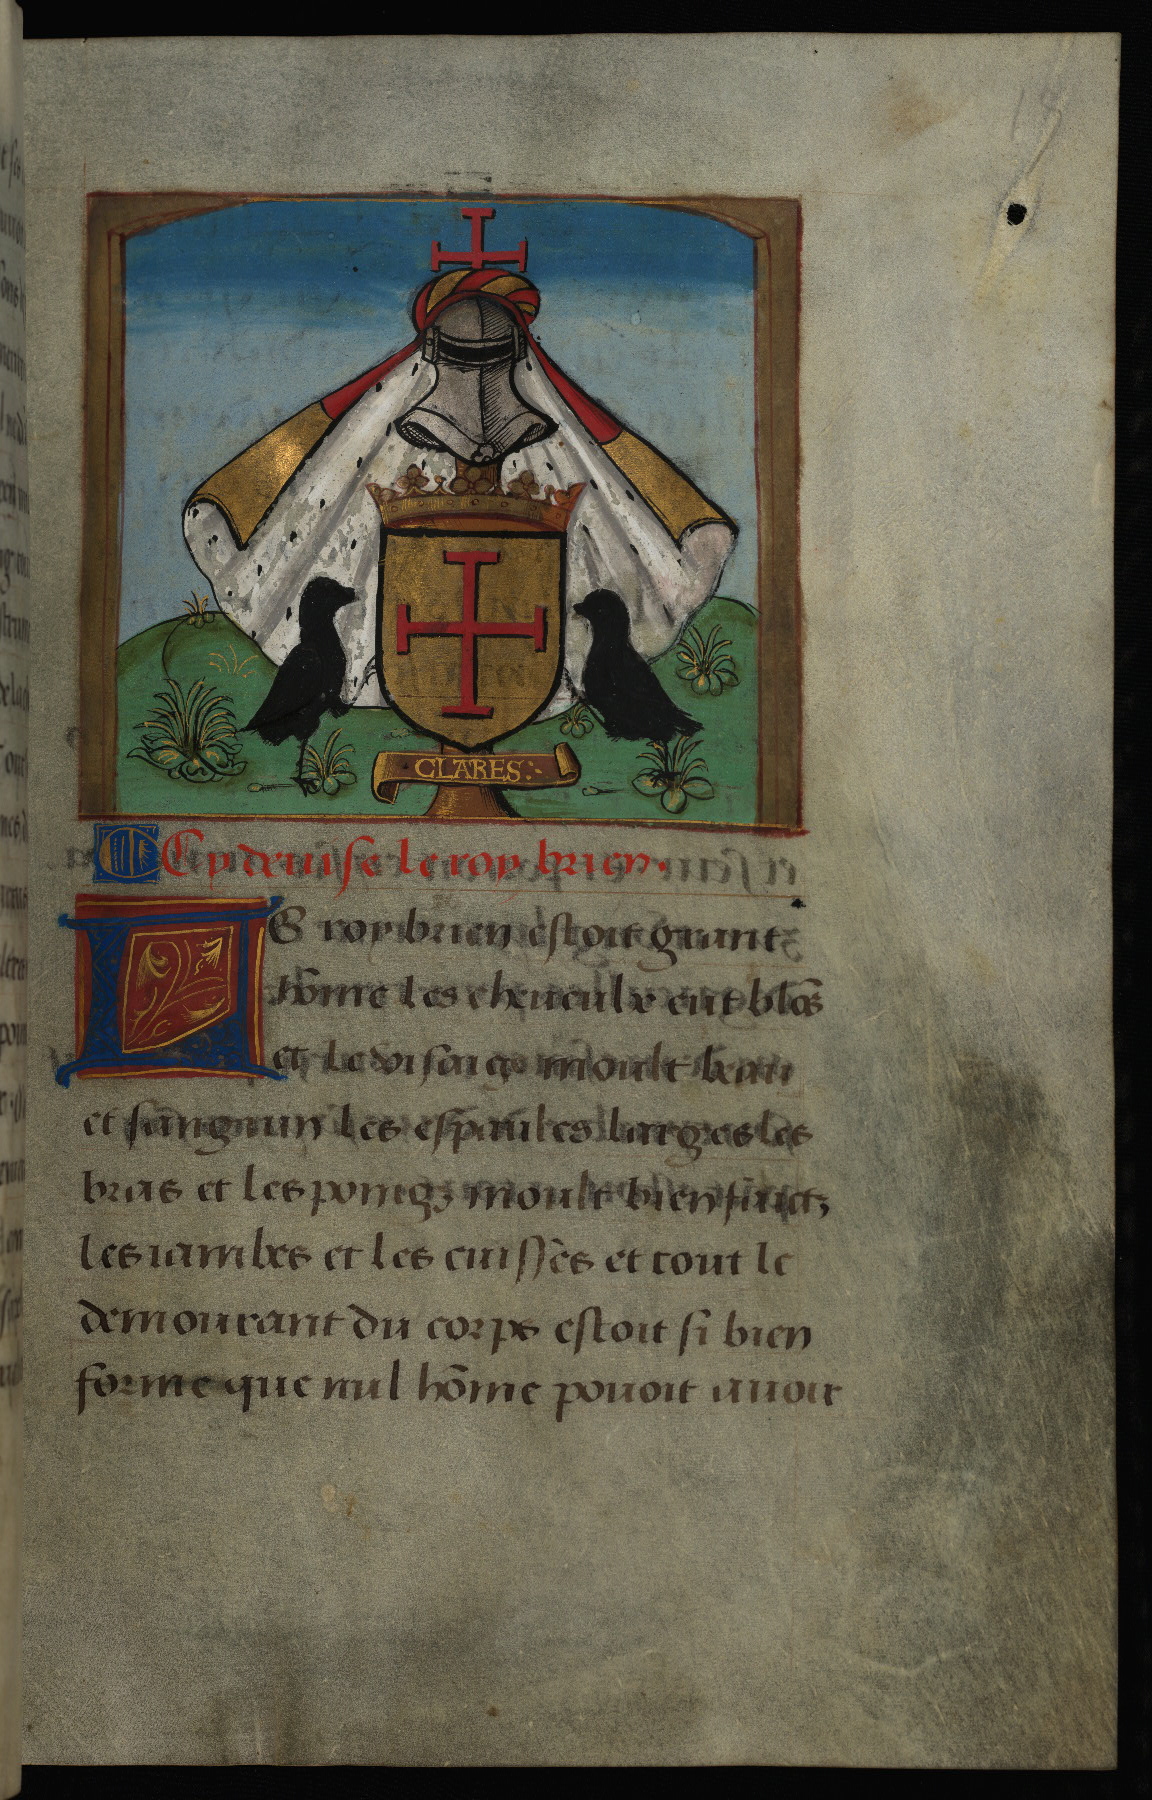 CLARES
Cy deuise le roy brien.
LE roy brien estoit grant
hōme les cheueulx eut blōs
et le visaige moult beau
et sanguin les espaules larges les
bras et les poingz moult bien faictz
les iambes et les cuisses et tout le
demourant du corps estoit si bien
forme que nul hōme pouoit auoir